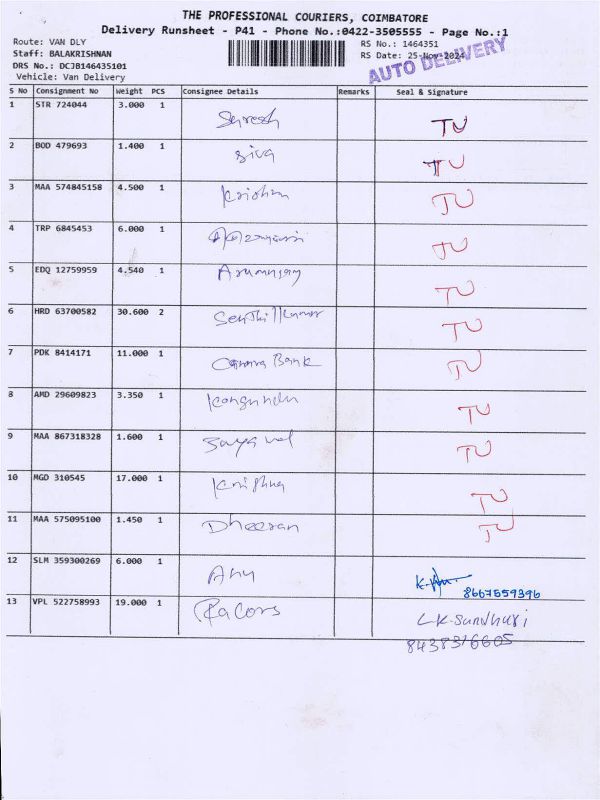 THE PROFESSIONAL COURIERS, COIMBATORE
Delivery Runsheet - P41 - Phone No.:0422-3505555 - Page No.:1
Route: VAN DLY
RS No.: 1464351
Staff: BALAKRISHNAN
RS Date: 25-Nov-2024
AUTO DELIVERY
DRS No.: DCJB146435101
Vehicle: Van Delivery
S No Consignment No Weight PCS Consignee Details Remarks Seal & Signature
1 STR 724044 3.000 1 Suresh TU
2 BOD 479693 1.400 1 Siva TU
3 MAA 574845158 4.500 1 Krishna TU
4 TRP 6845453 6.000 1 TU
5 EDQ 12759959 4.540 1 TU
6 HRD 63700582 30.600 2 Senthil Kumar TU
7 PDK 8414171 11.000 1 Canara Bank TU
8 AMD 29609823 3.350 1 TU
9 MAA 867318328 1.600 1 TU
10 MGD 310545 17.000 1 Krishna TU
11 MAA 575095100 1.450 1 Dheeran TU
12 SLM 359300269 6.000 1 Anu 8667559396
13 VPL 522758993 19.000 1 Racors L.K. Sundhari
8438316605